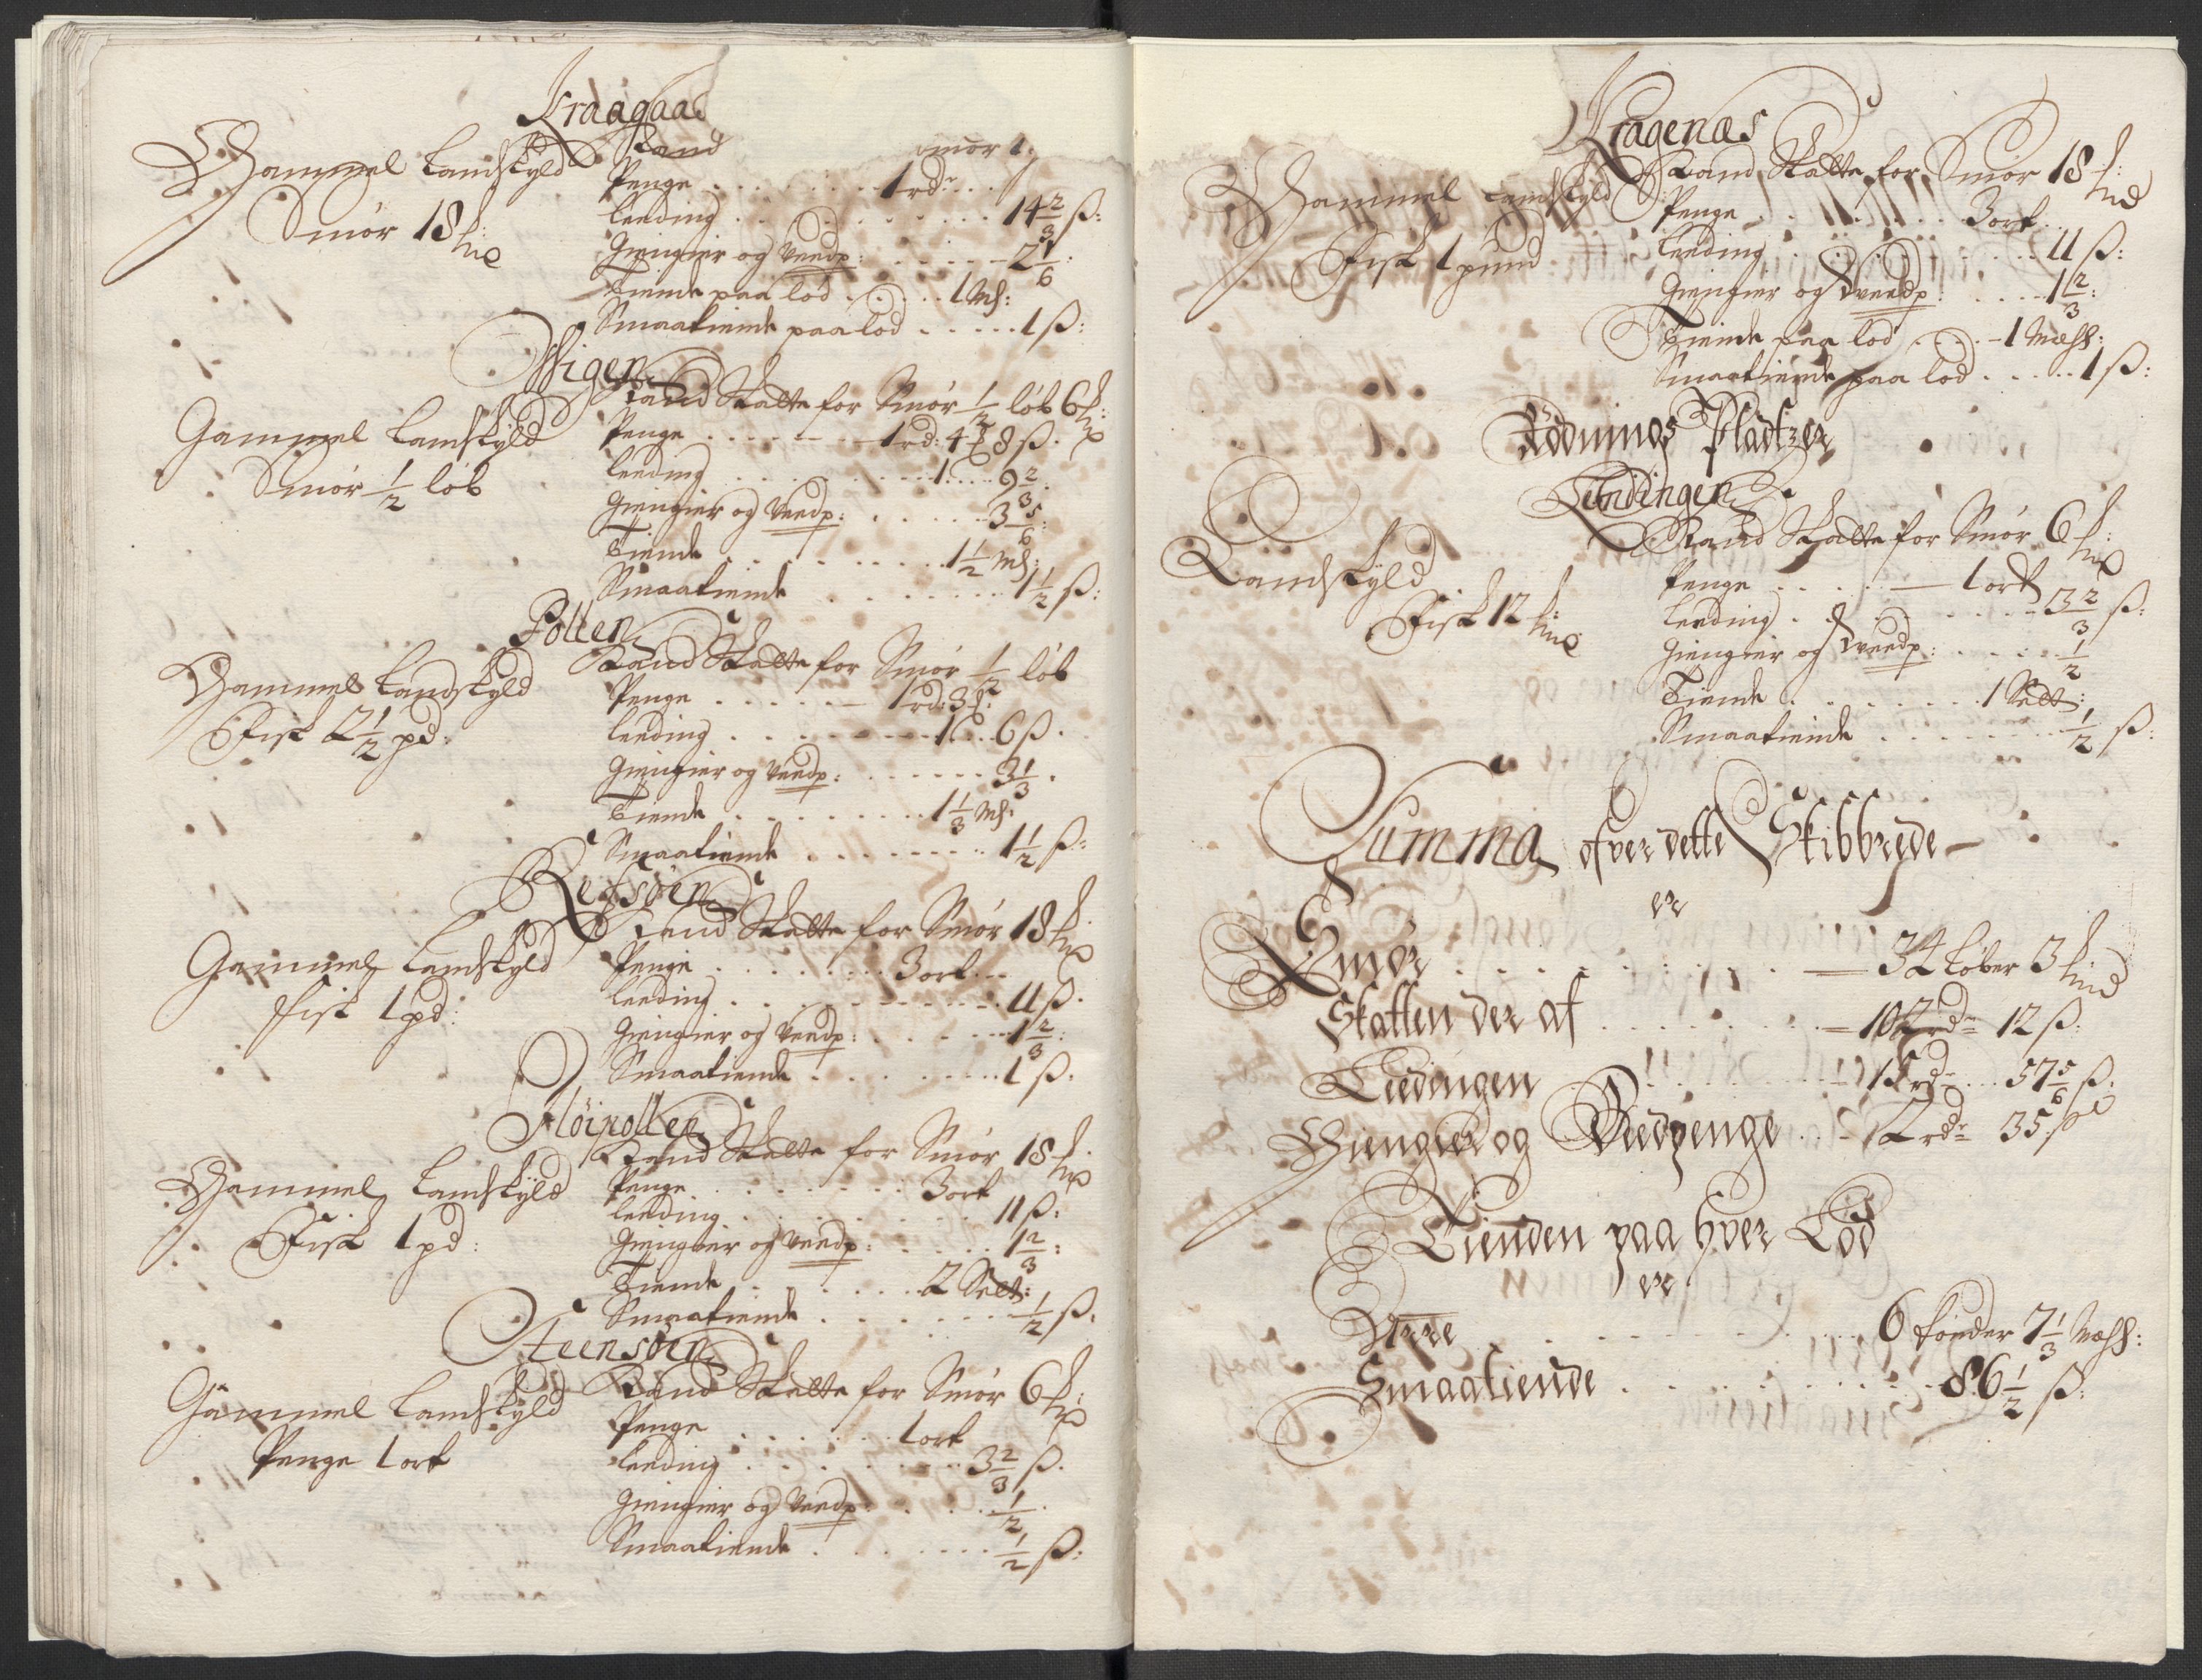 Kraagaas
Gammel Landskyld
Smør 18 
Kand
Smør 1.
Penge . . . . . . . 1 rdr . .
Leeding . . . . . . . . 14 2/3 ß:
Giengier og Veedp: . . . . . 2 1/6:
Tiende paa lod . . . . 1 Mß:
Smaatiende paa lod . . . . . 1 ß:
Wigen
Gammel Landskyld
Smør 1/2 løb
Kand Skatte for Smør 1/2 løb 6
Penge . . . . . 1 rd: 4 8 ß.
Leeding . . . . . . . 1 . . 9 2/3.
Giengier og Veedp: . . . . . 3 5/6:
Tiende . . . . . . . 1 1/2 Mß:
Smaatiende . . . . . . . 1 1/2 ß:
Pollen
Gammel Landskyld
Fisk 2 1/2 pd:
Kand Skatte for Smør 1/2 løb
Penge . . . . . 1 rd: 3
Leeding . . . . . . . 1 . . 6 ß.
Giengier og Veedp: . . . . . . 3 1/3.
Tiende . . . . . . . 1 1/3 Mß.
Smaatiende . . . . . . . 1 1/2 ß:
Refsøen
Gammel Landskyld
Fisk 1 pd:
Kand Skatte for Smør 18
Penge . . . . . . . 3 ort . .
Leeding . . . . . . . . . 11 ß.
Giengier og Veedp: . . . . . 1 2/3:
Smaatiende . . . . . . . 1 ß.
Høipollen
Gammel Landskyld
Fisk 1 pd:
Kand Skatte for Smør 18
Penge . . . . . . . 3 ort
Leeding . . . . . . . . 11 ß:
Giengier og Veedp: . . . . . 1 2/3:
Tiende . . . . . . 2 Sett:
Smaatiende . . . . . . . 1/2 ß.
Steensøen
Gammel Landskyld
Penge 1 ort
Kand Skatte for Smør 6
Penge . . . . . . . 1 ort
Leeding . . . . . . . . 3 2/3 ß.
Giengier og Veedp: . . . . 1/2.
Smaatiende . . . . . . . 1/2 ß:
Kragenæs
Gammel Landskyld
Fisk 1 pund
Kand Skatte for Smør 18
Penge . . . . . . . 3 ort
Leeding . . . . . . . . 11 ß:
Giengier og Veedp: . . . . 1 2/3:
Tiende paa lod . . . . 1 Mæß:
Smaatiende paa lod . . . . . 1 ß:
Rødnings Pladtzer
Tendingen
Landskyld
Fisk 12
Kand Skatte for Smør 6
Penge . . . . . 1 ort
Leeding . . . . . . . 3 2/3 ß:
Giengier og Veedp: . . . . . 1/2
Tiende . . . . . . . 1 Sett:
Smaatiende . . . . . . . 1/2 ß:
Summa ofver dette Skibbrede
er
Smør . . . . . . . . 34 Løber 3
Skatten der af . . . . . . . 102 rdr 12 ß:
Leedingen . . . . . . . 15 rdr . . 57 5/6 ß:
Giengier og Veedpenge . . . 2 rdr 35 ß
Tienden paa hver Lod
er
Arre . . . . . . . . 6 tønder 7 1/3 Mæß:
Smaatiende . . . . . . . . 86 1/2 ß: